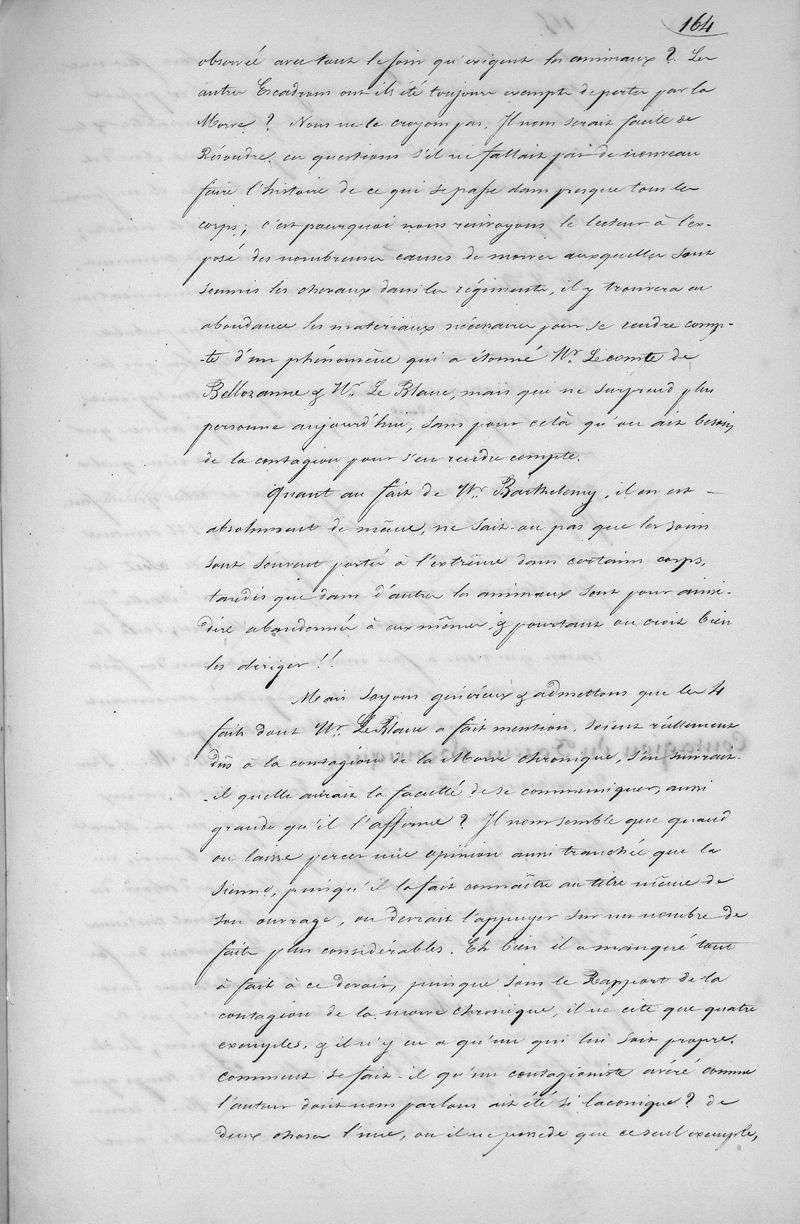 164
observée avec tout le soin qu'exigent les animaux ? Les
autres Escadrons ont ils été toujours exempts de pertes par la
Morve ? Nous ne le croyons pas. Il nous serait facile de
Résoudre ces questions s'il ne fallait pas de nouveau
faire l'histoire de ce qui se passe dans presque tous les
corps ; c'est pourquoi nous renvoyons le lecteur à l'ex-
posé des nombreuses causes de morve auxquelles sont
soumis les chevaux dans les régiments, il y trouvera en
abondance les matériaux nécessaires pour se rendre comp-
-te d'un phénomène qui a étonné Mr. Lecomte de
Bellozanne & Mr. Le Blanc, mais qui ne surprend plus
personne aujourd'hui, sans pour celà qu'on ait besoin
de la contagion pour s'en rendre compte.
Quant au fait de Mr. Barthelemy, il en est
absolument de même, ne sait-on pas que les soins
sont souvent portés à l'extrême dans certains corps,
tandis que dans d'autres les animaux sont pour ainsi-
dire abandonnés à eux mêmes, & pourtant on croit bien
les diriger !!
Mais soyons généreux & admettons que les 4
faits dont Mr. Le Blanc a fait mention, soient réellement
dûs à la contagion de la Morve chronique, s'en suivrait-
-il quelle aurait la faculté de se communiquer, aussi
grande qu'il l'affirme ? Il nous semble que quand
on laisse percer une opinion aussi tranchée que la
sienne, puisqu'il la fait connaître au titre même de
son ouvrage, on devrait l'appuyer sur un nombre de
faits plus considérables. Eh bien il a manqué tout
à fait à ce devoir, puisque sous le Rapport de la
contagion de la morve chronique, il ne cite que quatre
exemples, & il n'y en a qu'un qui lui soit propre.
comment se fait-il qu'un contagioniste avéré comme
l'auteur dont nous parlons ait été si laconique ? de
deux choses l'une, ou il ne possède que ce seul exemple,